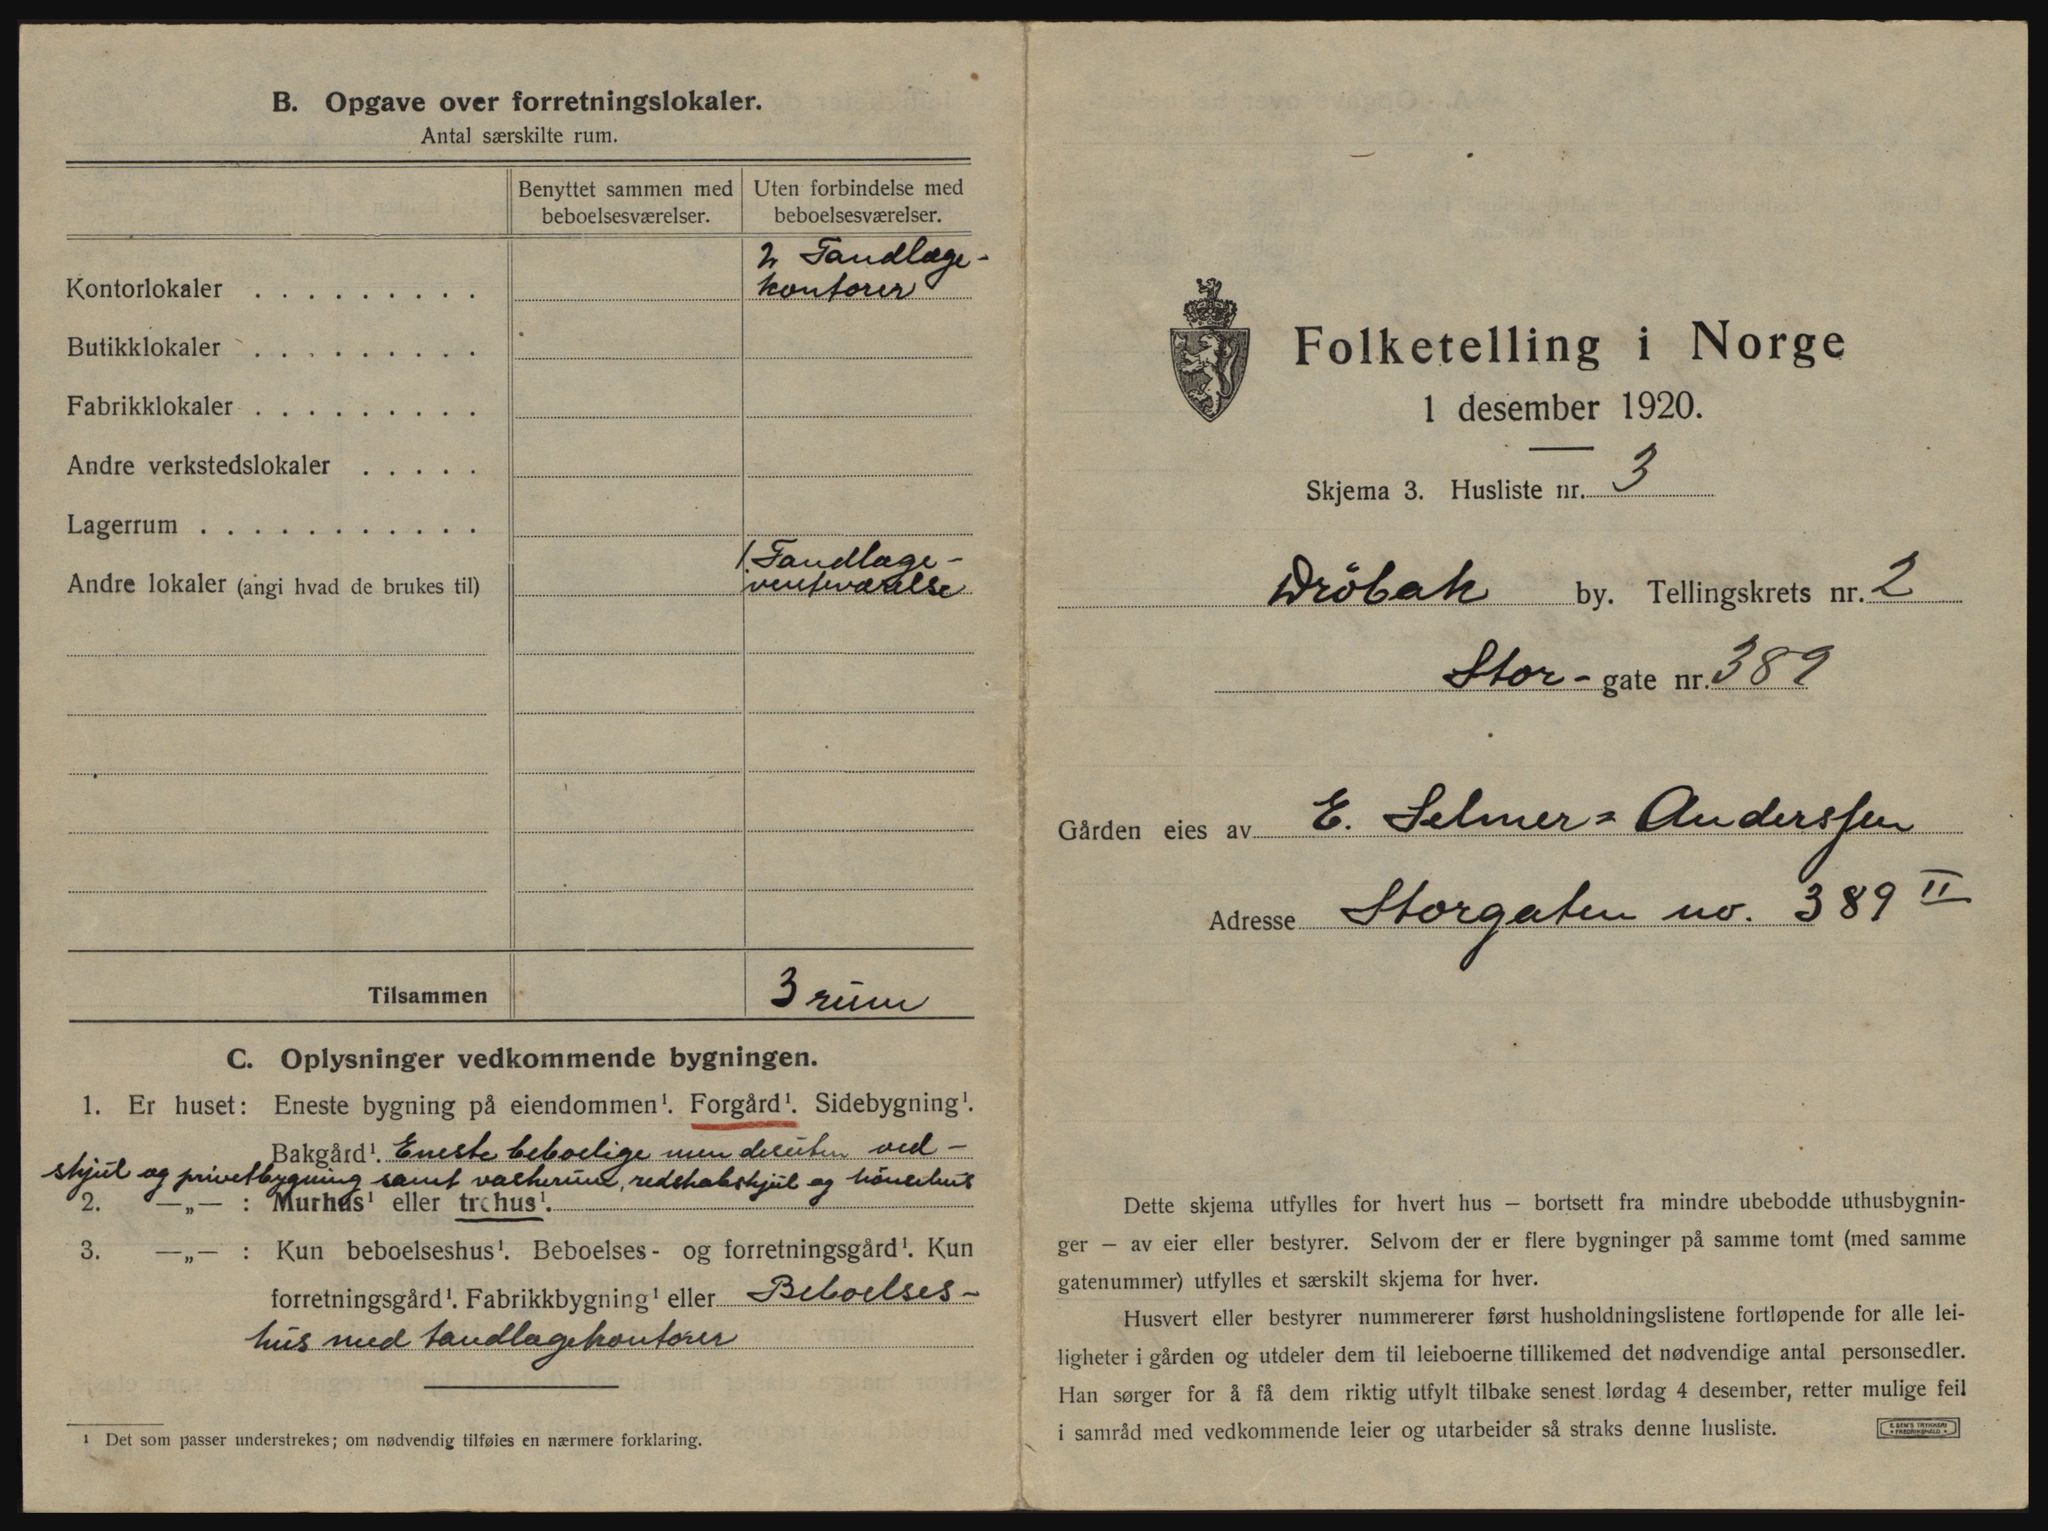 B. Opgave over forretningslokaler.
Antal særskilte rum.
Benyttet sammen med beboelsesværelser.
Uten forbindelse med beboelsesværelser.
Kontorlokaler . . . . . . . . . 2 Tandlæge-
kontorer
Butikklokaler . . . . . . . . .
Fabrikklokaler . . . . . . . . .
Andre verkstedslokaler . . . . .
Lagerrum . . . . . . . . . . . .
Andre lokaler (angi hvad de brukes til) 1 Tandlæge-
venteværelse
Tilsammen 3 rum
C. Oplysninger vedkommende bygningen.
1. Er huset: Eneste bygning på eiendommen¹. Forgård¹. Sidebygning¹.
Bakgård¹. Eneste beboelige men desuten ved-
skjul og privetbygning samt vaskerum, redskabskjul og hönsehus
2. —„— : Murhus¹ eller trehus¹.
3. —„— : Kun beboelseshus¹. Beboelses- og forretningsgård¹. Kun
forretningsgård¹. Fabrikkbygning¹ eller Beboelses-
hus med tandlægekontorer
¹ Det som passer understrekes; om nødvendig tilføies en nærmere forklaring.
Folketelling i Norge
1 desember 1920.
Skjema 3. Husliste nr. 3
Dröbak by. Tellingskrets nr. 2
Stor- gate nr. 389
Gården eies av E. Selmer= Anderssen
Adresse Storgaten no. 389 II
Dette skjema utfylles for hvert hus – bortsett fra mindre ubebodde uthusbygnin-
ger – av eier eller bestyrer. Selvom der er flere bygninger på samme tomt (med samme
gatenummer) utfylles et særskilt skjema for hver.
Husvert eller bestyrer nummererer først husholdningslistene fortløpende for alle lei-
ligheter i gården og utdeler dem til leieboerne tillikemed det nødvendige antal personsedler.
Han sørger for å få dem riktig utfylt tilbake senest lørdag 4 desember, retter mulige feil
i samråd med vedkommende leier og utarbeider så straks denne husliste.
E. SEM'S TRYKKERI
FREDRIKSHALD